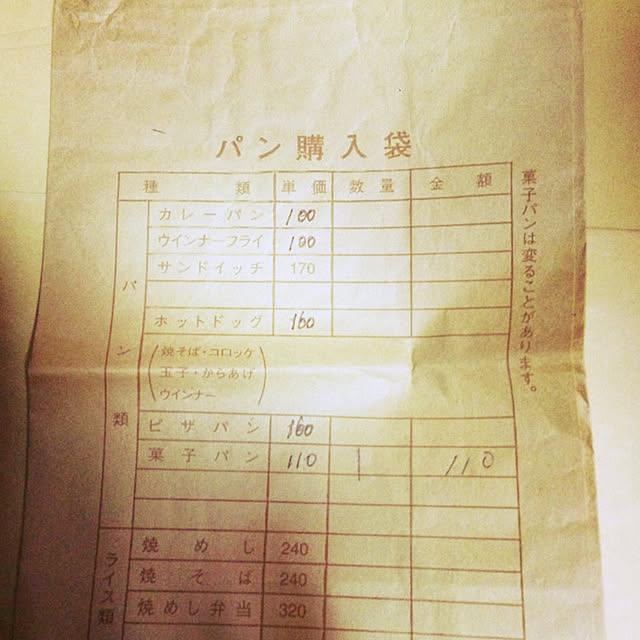 パン購入袋
種類 単価 数量 金額
カレーパン 100
ウインナーフライ 100
サンドイッチ 170
ホットドッグ 160
(焼そば・コロッケ
玉子・からあげ
ウインナー)
ピザパン 160
菓子パン 110 1 110
パン類
焼めし 240
焼そば 240
焼めし弁当 320
ライス類
菓子パンは変ることがあります。